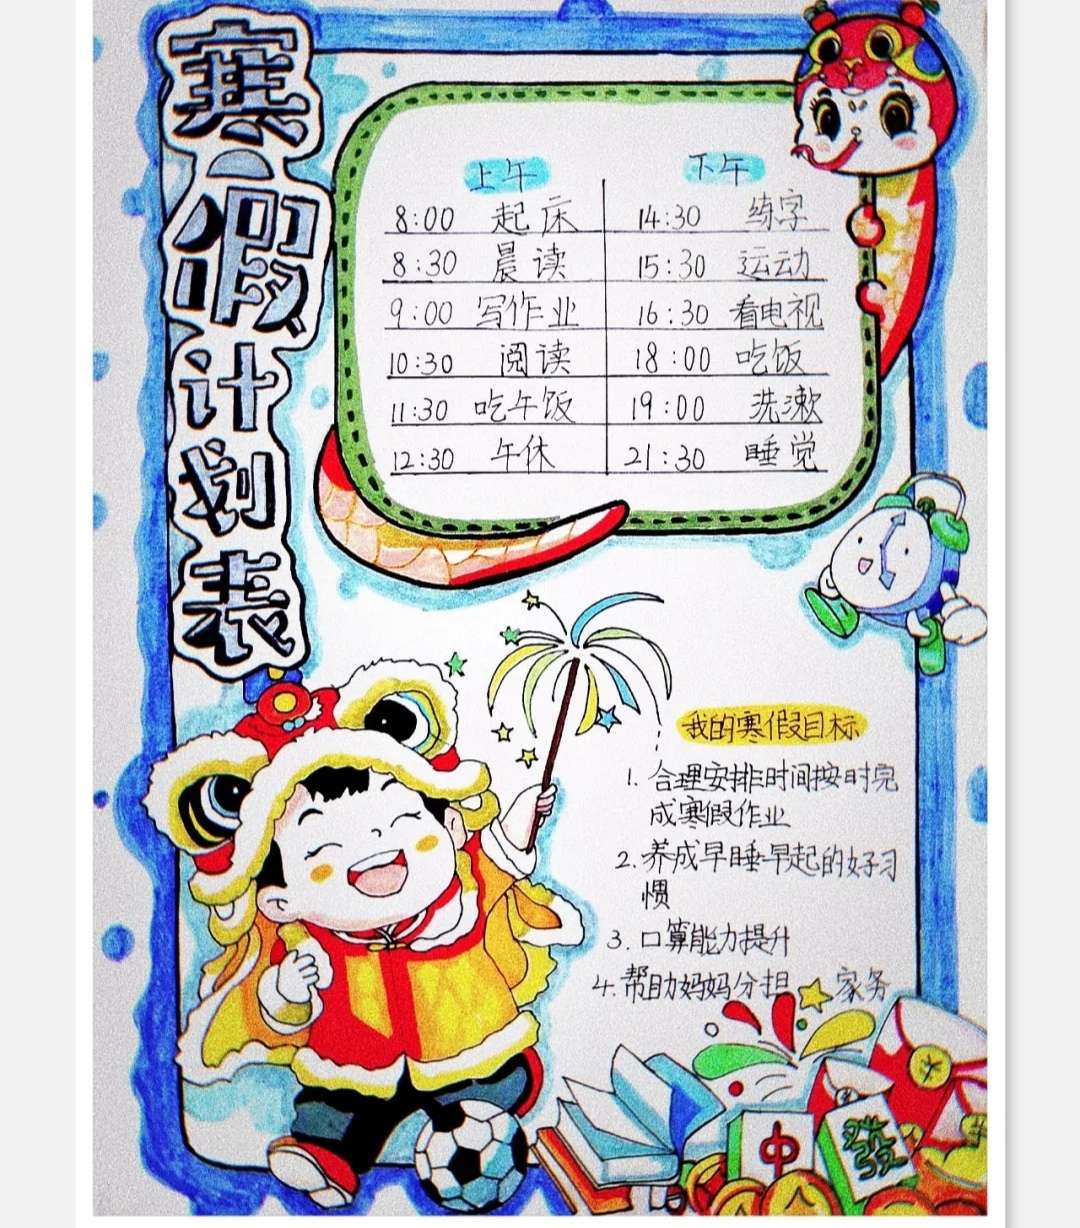 寒假计划表
上午 下午
8:00 起床 14:30 练字
8:30 晨读 15:30 运动
9:00 写作业 16:30 看电视
10:30 阅读 18:00 吃饭
11:30 吃午饭 19:00 洗漱
12:30 午休 21:30 睡觉
我的寒假目标
1. 合理安排时间按时完
成寒假作业
2. 养成早睡早起的好习
惯
3. 口算能力提升
4. 帮助妈妈分担 家务
中
發